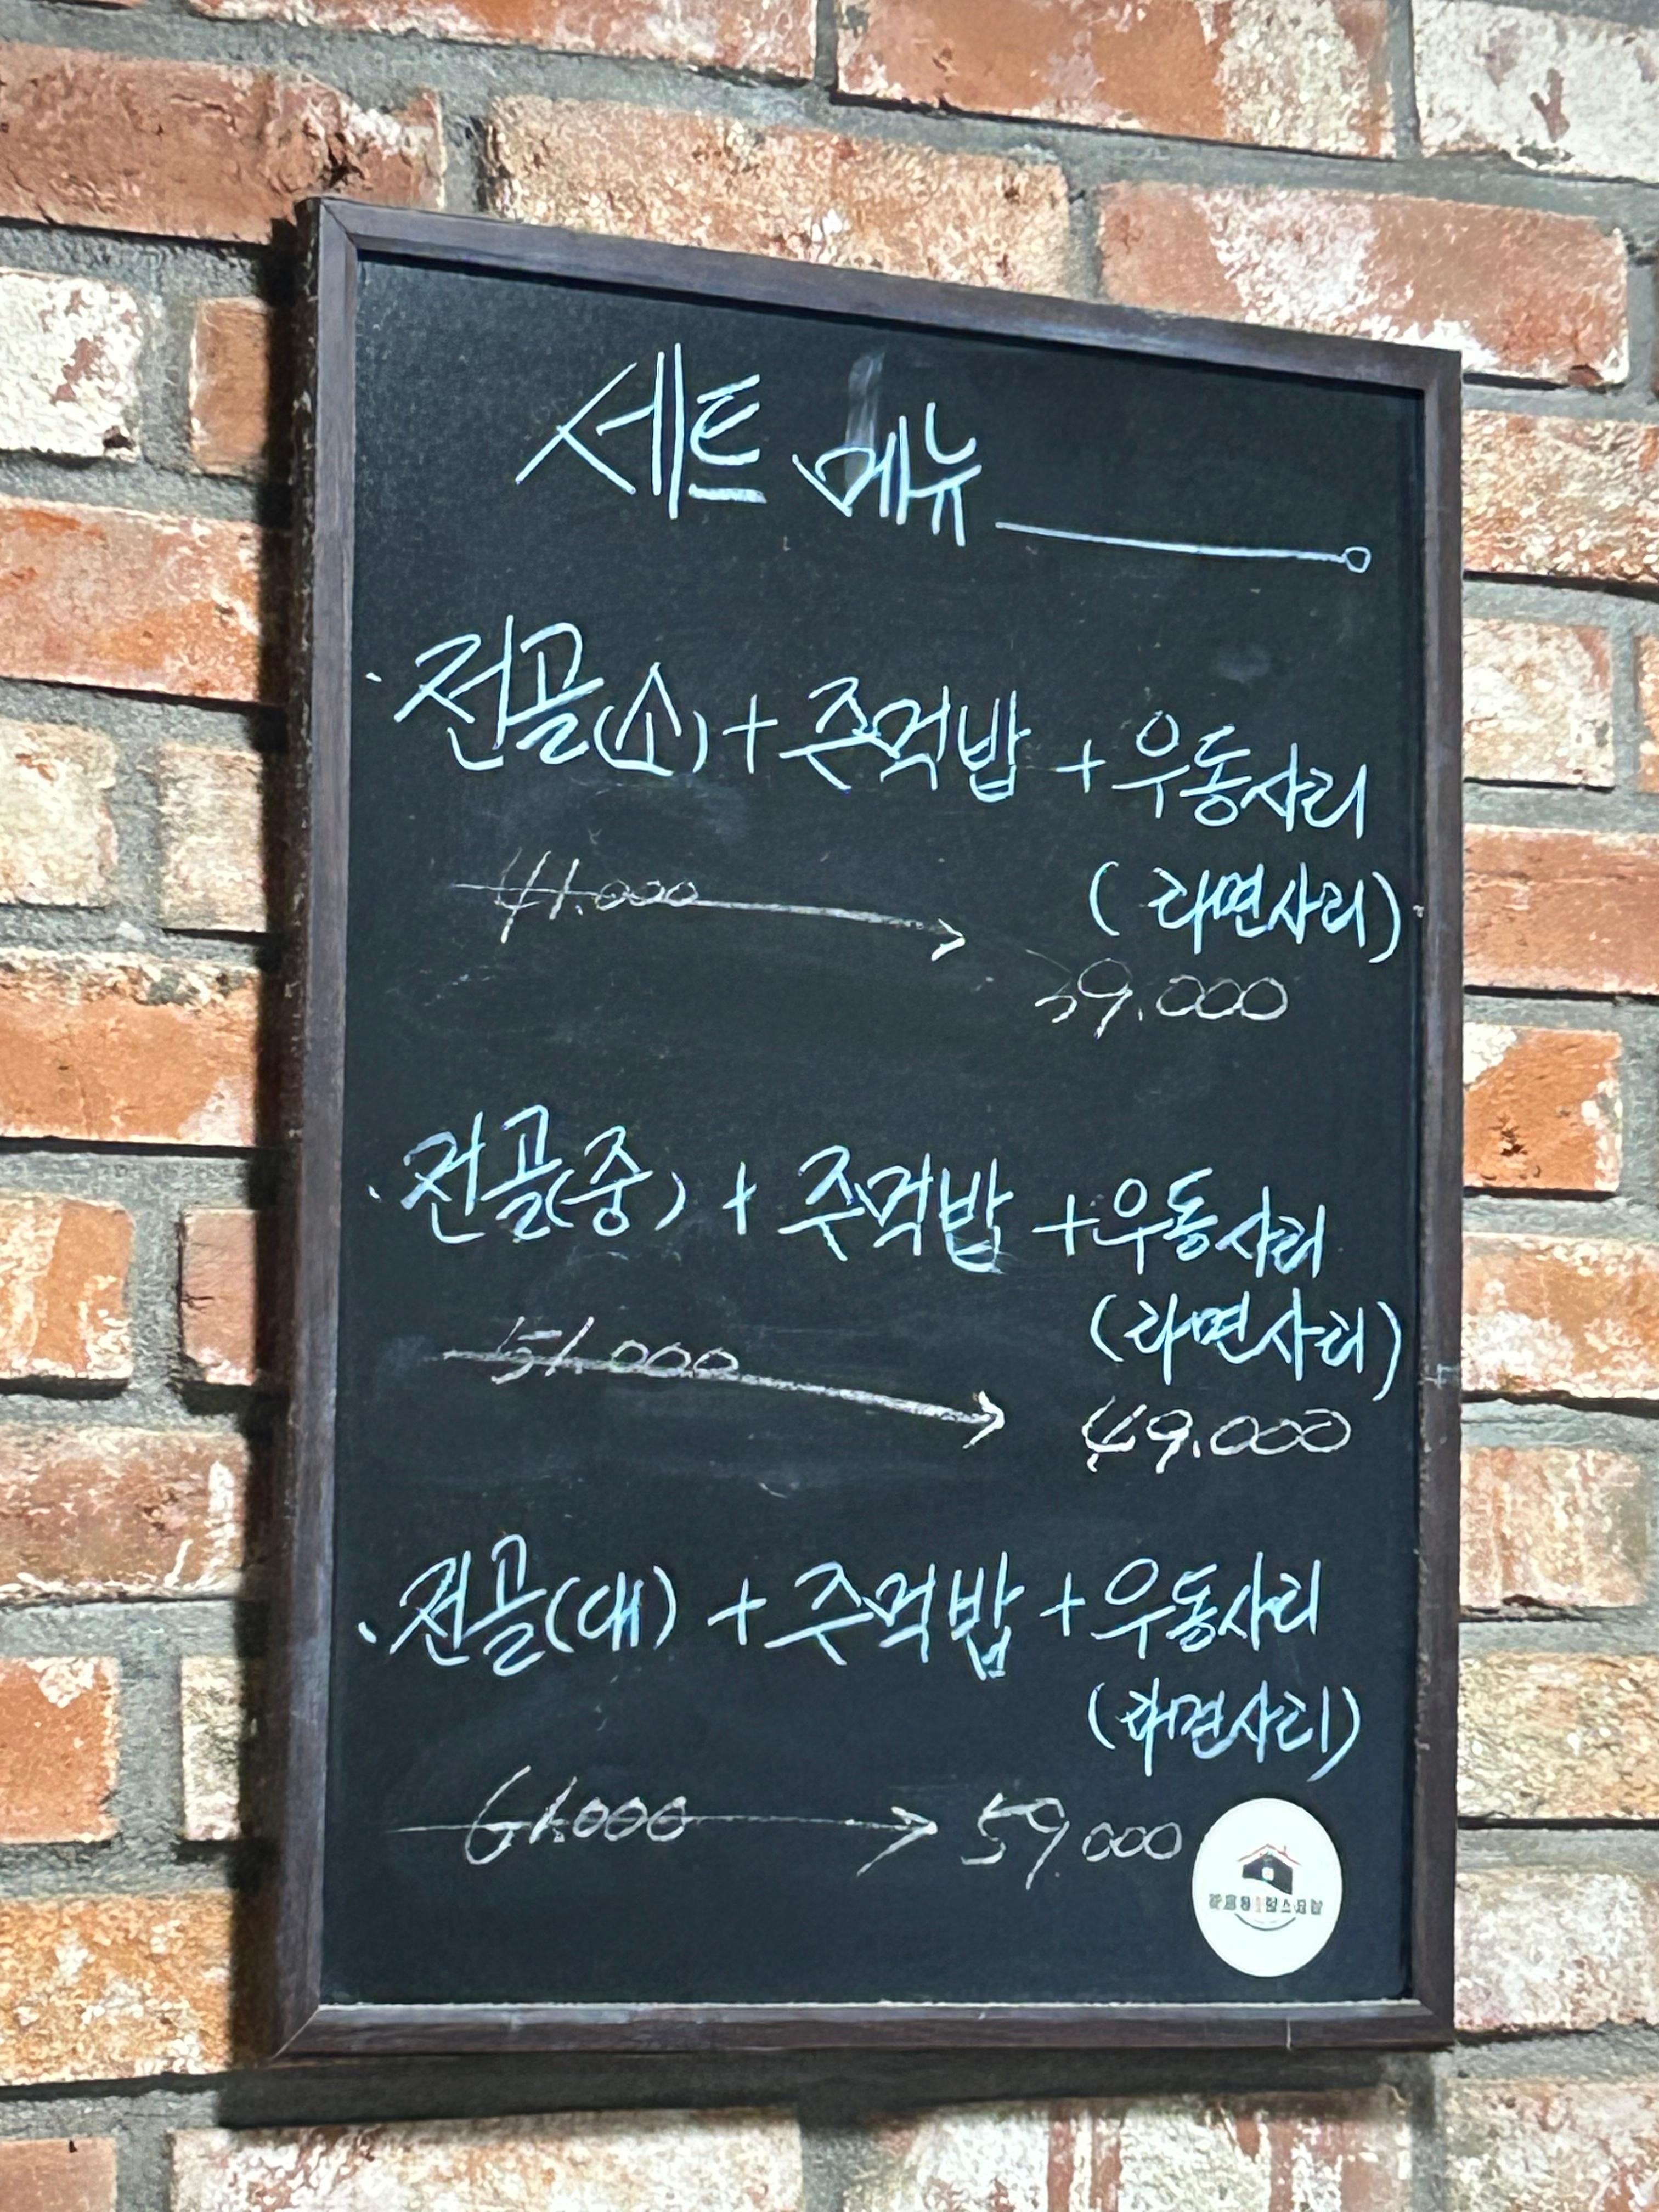 세트 메뉴
· 전골(소) + 주먹밥 + 우동사리
(라면사리)
41.000 → 39.000
· 전골(중) + 주먹밥 + 우동사리
(라면사리)
51.000 → 49.000
· 전골(대) + 주먹밥 + 우동사리
(라면사리)
61.000 → 59.000